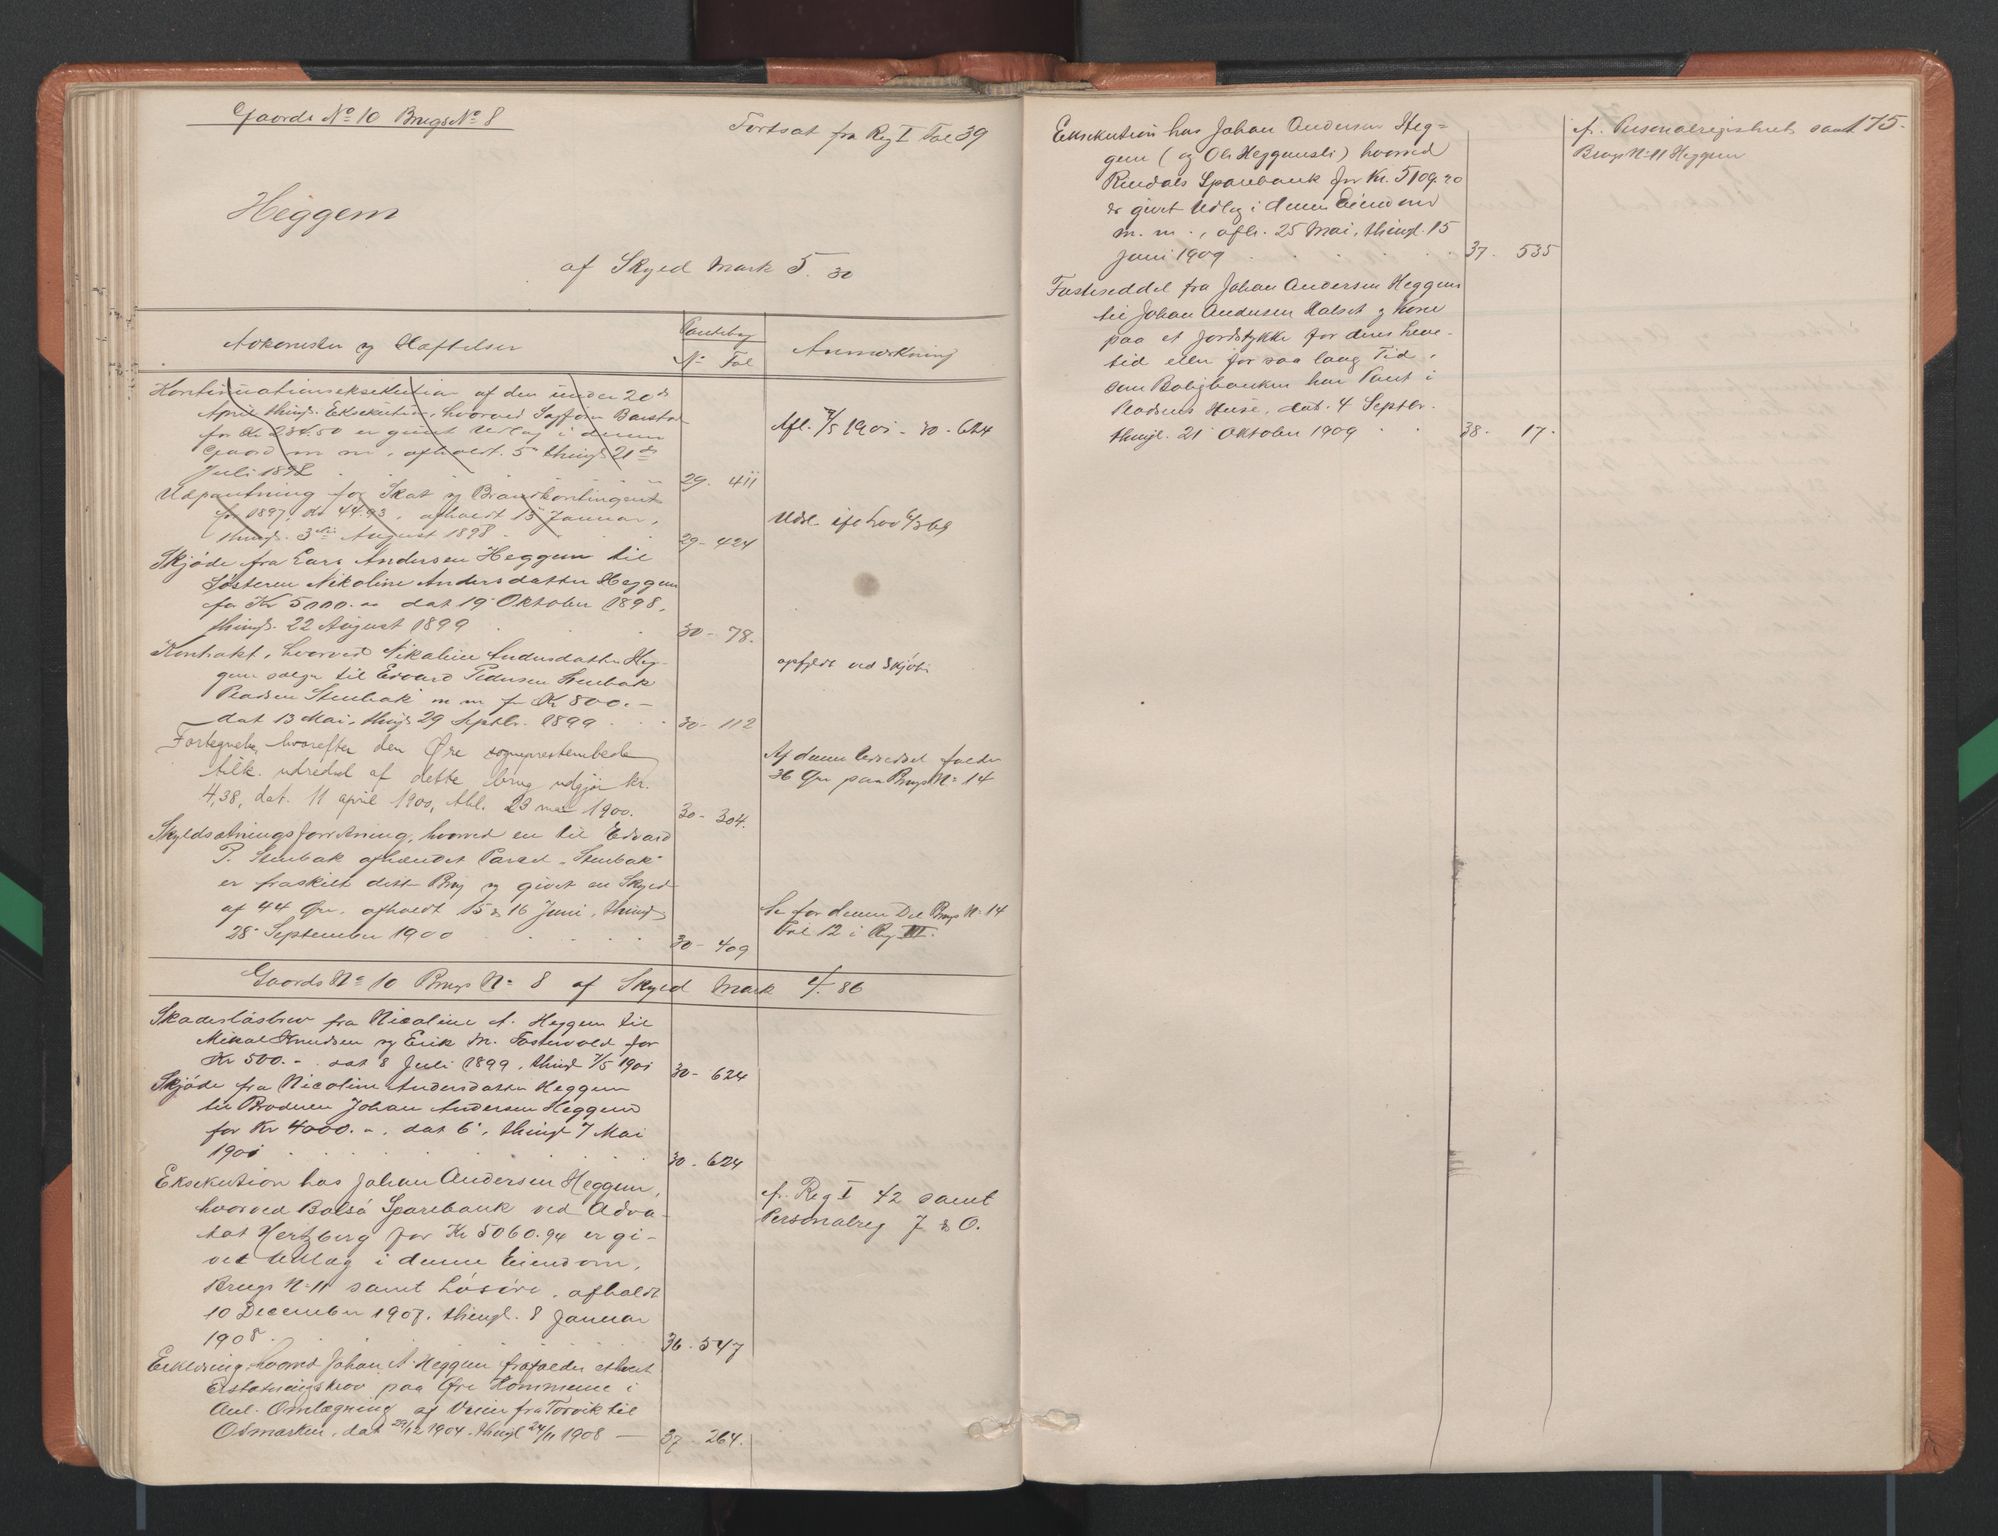 Gaards No 10 Brugs No 8
Fortsat fra Reg I Fol 39
Heggem
af Skyld Mark 5.30
Adkomster og Hæftelser
Pantebog
No Fol
Anmærkning
Kontinuationseksekution af den under 20de
April thingl. Eksekution, hvorved
for Kr 234.50 er givet Udlæg i denne
Gaard m m, afholdt 5 thingl 21de
Juli 1898
29. 411
Afl. 7/5 1901 - 30 - 624
Udpantning for Skat og Brandkontingent
for 1897, Kr 44.93, afholdt 15 Januar,
thingl. 3die August 1898
29 - 424
Udsl. ifr Lov
Skjøde fra Lars Andersen Heggem til
Søsteren Nikoline Andersdatter Heggem
for Kr 5000.00 dat 19 Oktober 1898,
thingl. 22 August 1899
30 - 78.
Kontrakt, hvorved Nikoline Andersdatter Heg-
gem sælger til Edvard Pedersen Stenbak
Pladsen Stenbak m m for Kr 800.-
dat 13 Mai, thingl 29 Septbr. 1899
30 - 112
opfyldt ved Skjøde
Fortegnelse hvorefter den Øre sogneprestembede
tilk. udredsel af dette brug udgjør kr.
4,38, dat. 11 april 1900, thl. 23 mai 1900.
30 - 304.
Af denne Udredsel falder
36 Øre paa Brugs No 14
Skyldsætningsforretning, hvorved en til Edvard
P. Stenbak afhændet Parcel "Stenbak"
er fraskilt dette Brug og givet en Skyld
af 44 Øre, afholdt 15 & 16 Juni, thingl
28 September 1900
30 - 409
Se for denne Del Brugs No 14
Fol 12 i Reg III.
Gaards No 10 Brugs No 8 af Skyld Mark 4.86
Skadesløsbrev fra Nicoline A. Heggem til
Mikal Knudsen og Erik M. Fostervold for
Kr 500.- dat 8 Juli 1899, thingl 7/5 1901
30 - 624
Skjøde fra Nicoline Andersdatter Heggem
til Broderen Johan Andersen Heggem
for Kr 4000.-, dat 6, thingl 7 Mai
1901
30 - 624
Eksekution hos Johan Andersen Heggem,
hvorved Bolsø Sparebank ved Advo-
kat Hertzberg for Kr 5060.94 er gi-
vet Udlæg i denne Eiendom,
Brugs No 11 samt Løsøre, afholdt
10 December 1907. thingl. 8 Januar
1908.
36 - 547
cfr. Reg I 42 samt
Personalreg J & O.
Erklæring, hvorved Johan A. Heggem frafalder ethvert
Erstatningskrav paa Øre Kommune i
Anl. Omlægning af Veien fra Torvik til
Osmarken, dat 29/12 1904. thingl 24/11 1908 -
37 - 264.
Eksekution hos Johan Andersen Heg-
gem (og Ole Heggemsli) hvorved
Rindals Sparebank for Kr. 5109.20
er givet Udlæg i denne Eiendom
m. m., afh. 25 Mai, thingl. 15
Juni 1909
37. 535
cfr. Personalregistret samt
Brugs No 11 Heggem
175.
Fæsteseddel fra Johan Andersen Heggem
til Johan Andersen Halset og Kone
paa et Jordstykke for deres Leve-
tid eller for saa lang Tid,
som Boligbanken har Pant i
Pladsens Huse, dat. 4 Septbr.
thingl. 21 Oktober 1909
38. 17.